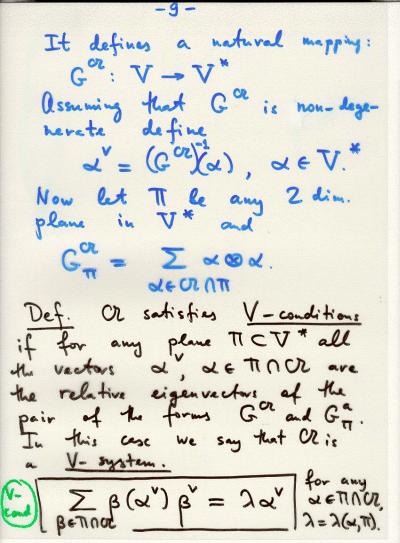 - 9 -
It defines a natural mapping:
G^𝔄 : V → V*
Assuming that G^𝔄 is non-dege-
nerate define
α^∨ = (G^𝔄)^{-1}(α), α ∈ V.*
Now let Π be any 2 dim.
plane in V* and
G^𝔄_Π = Σ_{α∈𝔄∩Π} α⊗α.
Def. 𝔄 satisfies V-conditions
if for any plane Π⊂V* all
the vectors α^∨, α∈Π∩𝔄 are
the relative eigenvectors of the
pair of the forms G^𝔄 and G^𝔄_Π.
In this case we say that 𝔄 is
a V-system.
V-cond
Σ_{β∈Π∩𝔄} β(α^∨) β^∨ = λ α^∨
for any
α∈Π∩𝔄,
λ=λ(α,Π).